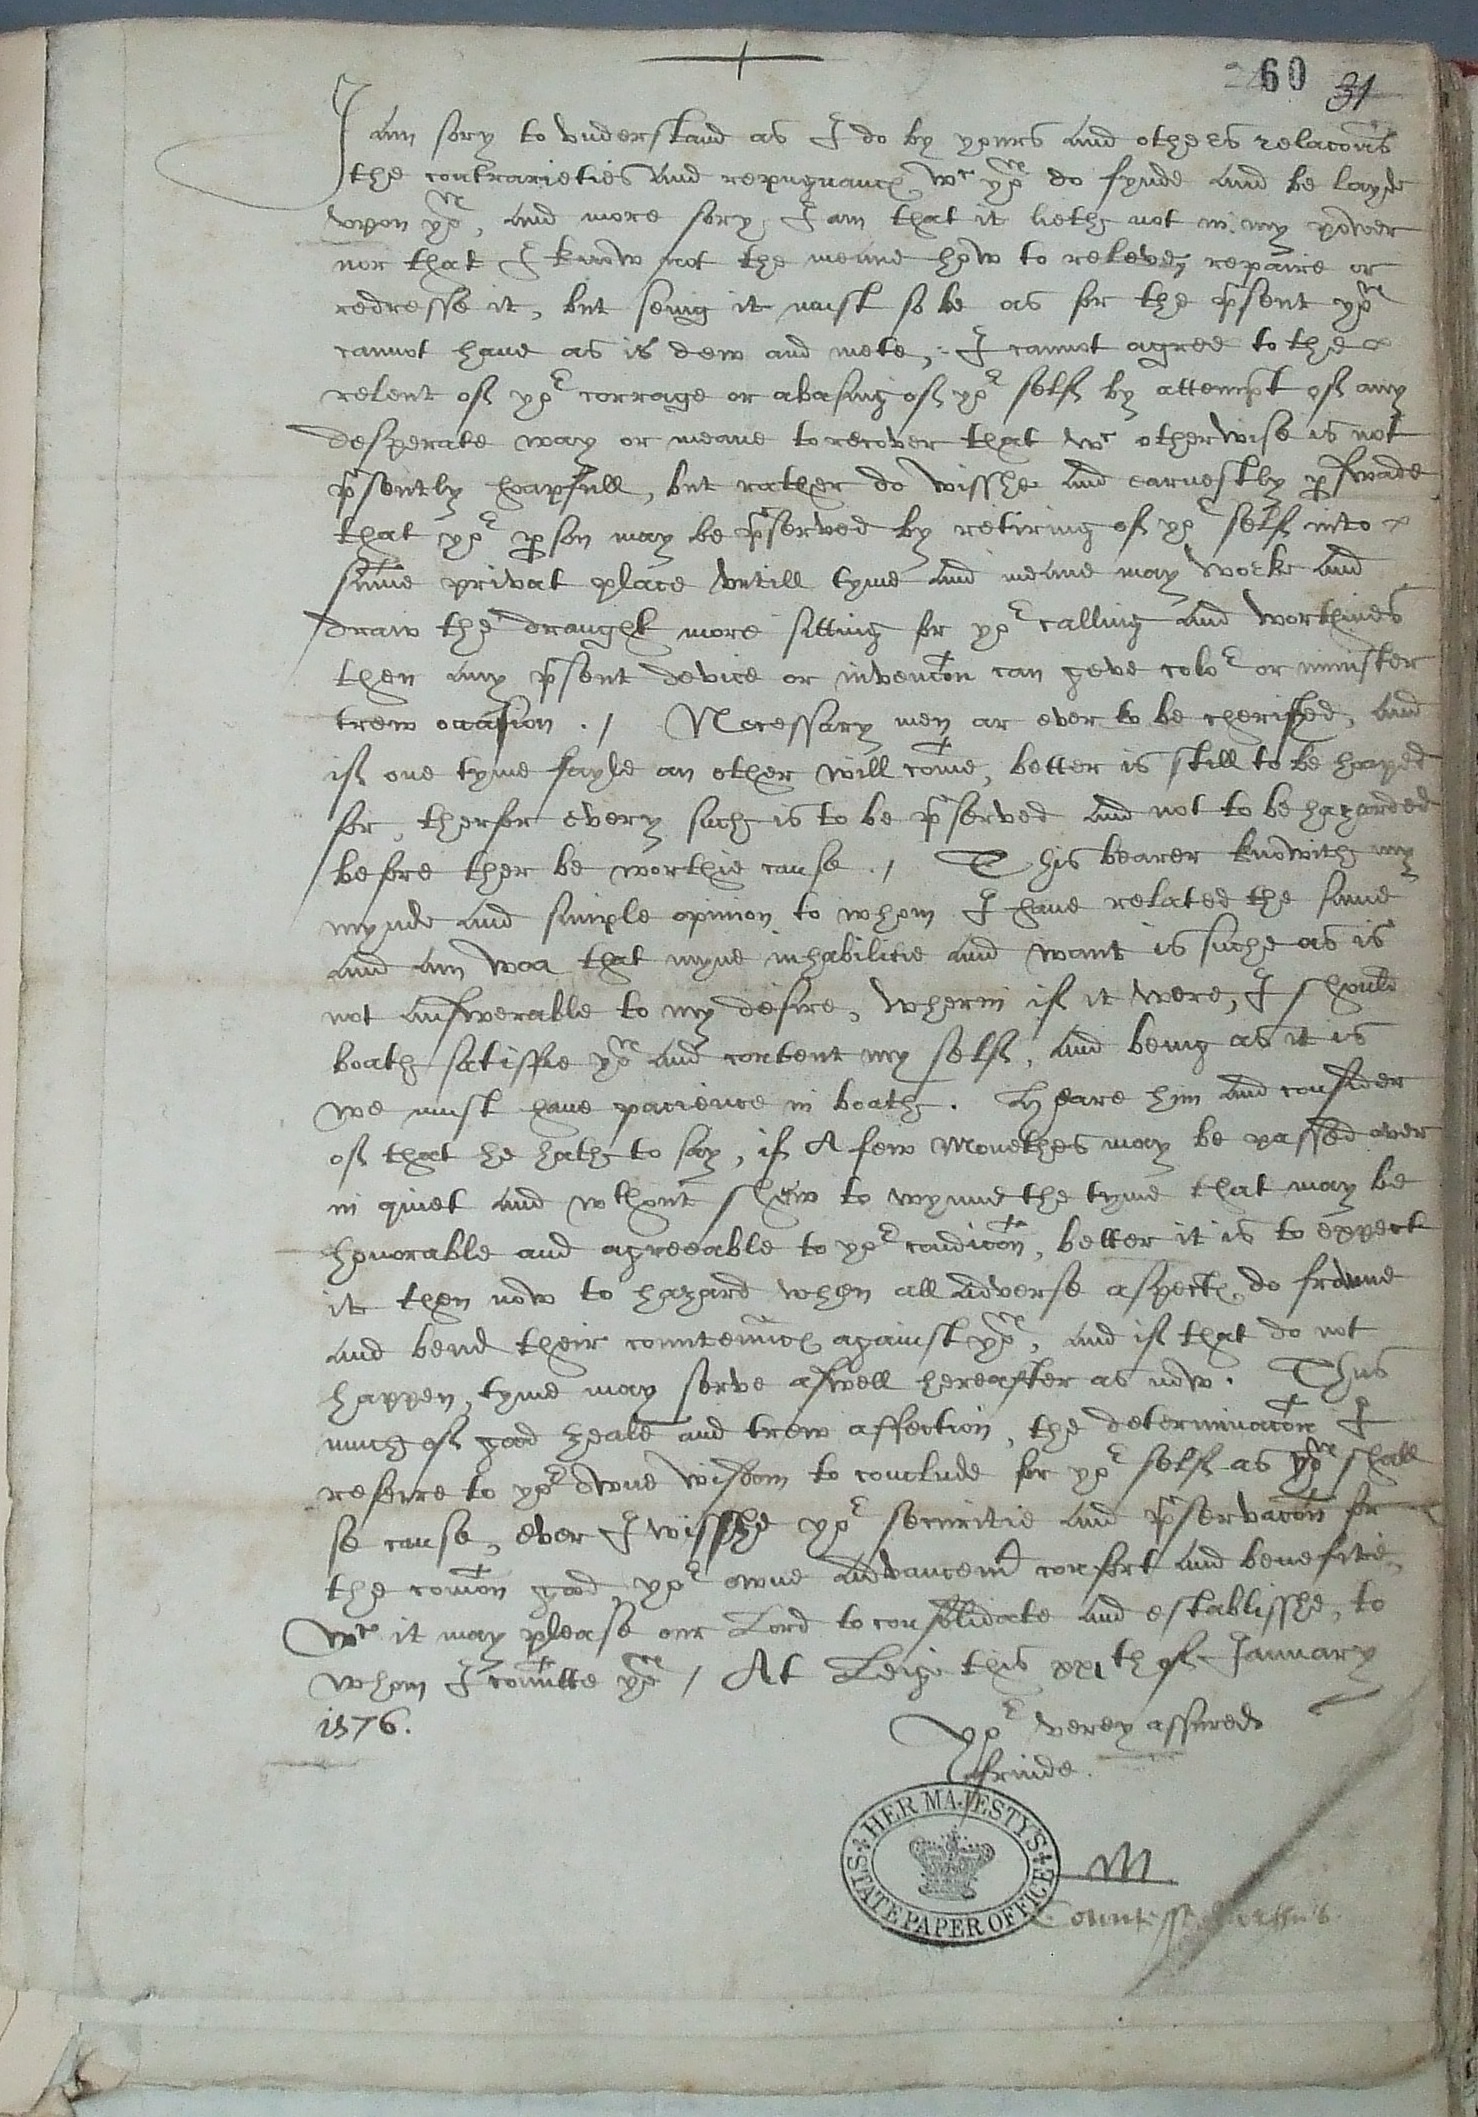 60 31
I am sory to vnderstand as I do by yours and others relac̃ons
the contrarieties and repugnanc̃ wch yow do fynde and be layde
vpon yow, and more sory I am that it lieth not in my power
nor that I know not the meane how to releve, repaire or
redresse it, but seing it must so be as for the pñsent yow
cannot have as is dew and mete, I cannot agree to the
relent of yor corrage or abasing of yor self by attempt of any
desperate way or meane to recover that wch otherwise is not
pñsently hoapfull, but rather do wisshe and earnestly pswade
that yor pson may be pñserved by retiring of yor self into
sum̃e privat place vntill tyme and meane may worke and
draw the draught more fitting for yor calling and worthines
then any pñsent device or invenc̃on can geve color or minister
trew occasion ./ Necessary men ar ever to be cherished, and
if one tyme fayle an other will com̃e, better is still to be hoaped
for, therfor every such is to be pñserved and not to be hazarded
before ther be worthie cause ./ This bearer knowith my
mynde and simple opinion to whom I have related the same
and am woa that myne inhabilitie and want is suche as is
not answerable to my desire, wherin if it were, I should
boath satisfie yow and content my self, and being as it is
we must have pacience in boath. Heare him and consider
of that he hath to say, if A few Monethes may be passed over
in quiet and wthout shew to wynne the tyme that may be
honorable and agreeable to yor condic̃on, better it is to expect
it then now to hazard when all adverse aspect do frowne
and bend their countenñc against yow, and if that do not
happen, tyme may serve aswell hereafter as now. Thus
much of good zeale and trew affection, the determinac̃on I
referre to yor owne wisdom to conclude for yor self as yow shall
se cause, ever I wisshe yor securitie and pñservac̃on for
the com̃on good, yor owne advancemt confort and benefitie,
wch it may please our Lord to consolidate and establisshe, to
whom I com̃itte yow / At Leige this xxith of January
1576.
Yor verey assured
frinde.
HER MAJESTY'S STATE PAPER OFFICE
M
Countesse